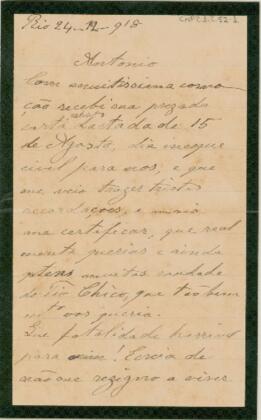 Rio 24-12-918
Antonio
Com muitissima como-
ção recebi sua prezada
carta datada de 15
de Agosto, dia
civel para nos, e que
me veio trazer tristes
recordações, e mais
me certificar, que real
mente querias e ainda
tens muitas saudade
do Tio Chico, que tão bem
vos queria.
Que fatalidade horrivel
para mim! Cercia de
não me rezigno a viver